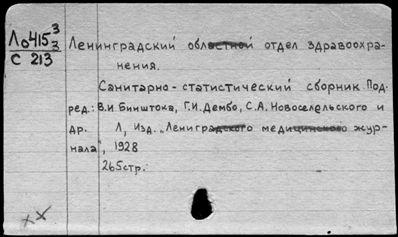 Ло415 3/3
С 213
Ленинградский областной отдел здравоохра-
нения.
Санитарно-статистический сборник Под.
ред.: В.И. Бинштока, Г.И. Дембо, С.А. Новосельского и
др. Л, Изд. „Ленинградского медицинского жур-
нала", 1928
265стр.
хх